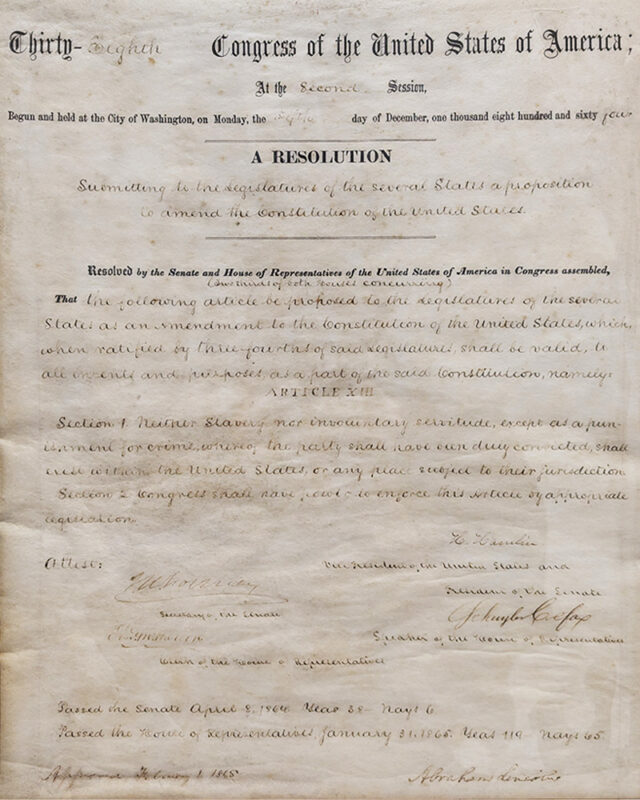 Thirty-Eighth Congress of the United States of America;
At the Second Session,
Begun and held at the City of Washington, on Monday, the day of December, one thousand eight hundred and sixty four
A RESOLUTION
Submitting to the Legislatures of the several States a proposition
to amend the Constitution of the United States.
Resolved by the Senate and House of Representatives of the United States of America in Congress assembled,
(two thirds of both Houses concurring)
That the following article be proposed to the Legislatures of the several
States as an Amendment to the Constitution of the United States, which,
when ratified by three-fourths of said Legislatures, shall be valid, to
all intents and purposes, as a part of the said Constitution, namely:
ARTICLE XIII
Section 1. Neither Slavery nor involuntary servitude, except as a pun-
ishment for crime, whereof the party shall have been duly convicted, shall
exist within the United States, or any place subject to their jurisdiction.
Section 2. Congress shall have power to enforce this Article by appropriate
legislation.
Attest:
H. Hamlin
Vice President of the United States and
President of the Senate
Secretary of the Senate
Schuyler Colfax
Speaker of the House of Representatives
Clerk of the House of Representatives
Passed the Senate April 8, 1864 Yeas 38 Nays 6
Passed the House of Representatives, January 31, 1865. Yeas 119 Nays 65
Approved February 1, 1865 Abraham Lincoln